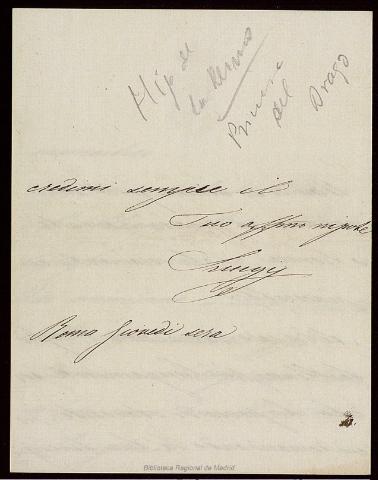 Hijo de
la Reina
Principe
del
Drago
credimi sempre il
Tuo affmo nipote
Luigi
Roma Giovedi sera
Biblioteca Regional de Madrid